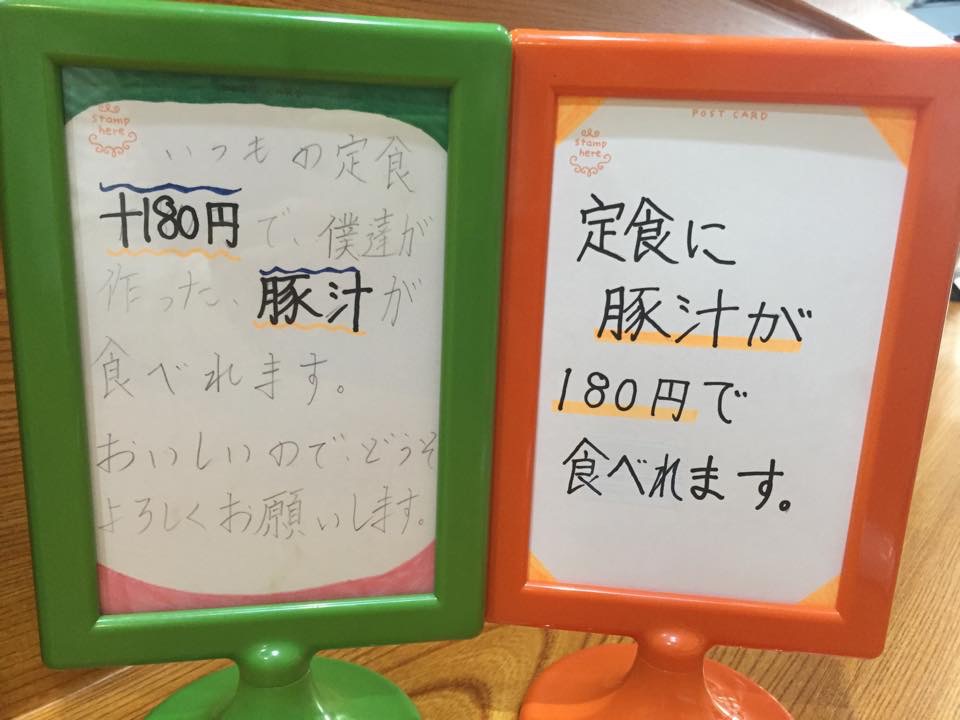 stamp
here
いつもの定食
+180円で、僕達が
作った、豚汁が
食べれます。
おいしいので、どうぞ
よろしくお願いします。
POST CARD
stamp
here
定食に
豚汁が
180円で
食べれます。